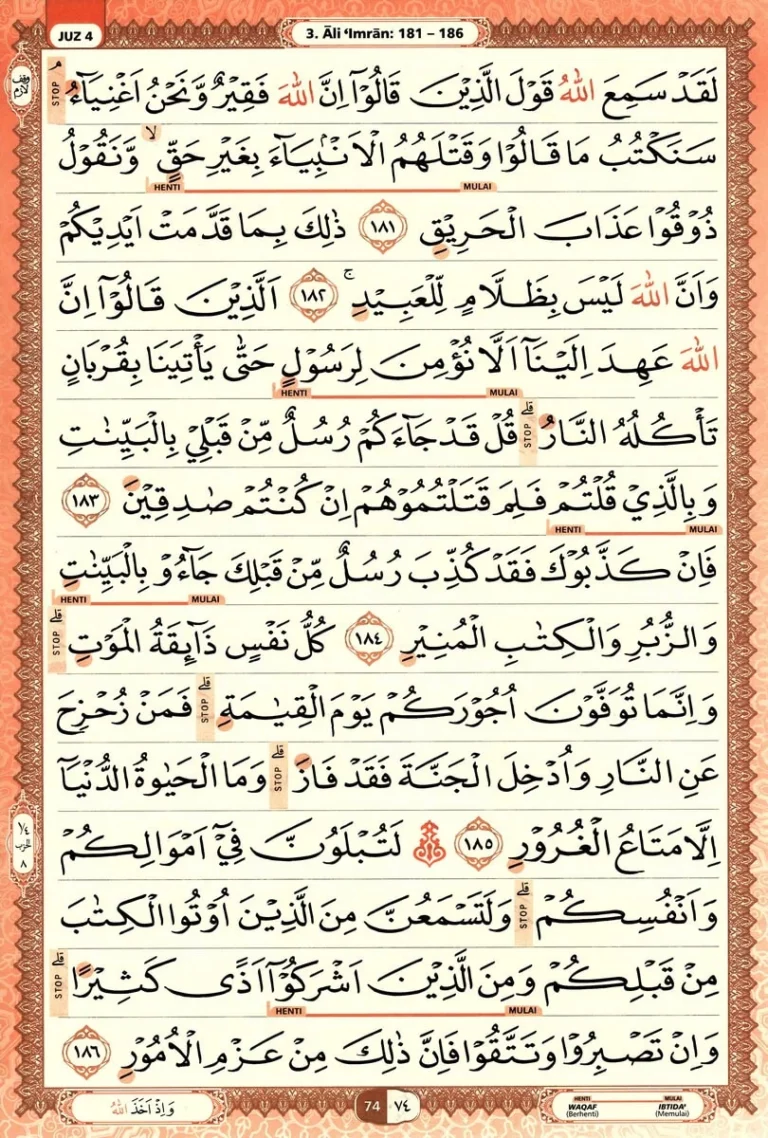 JUZ 4
3. Āli ‘Imrān: 181 – 186
لَقَدْ سَمِعَ اللّٰهُ قَوْلَ الَّذِيْنَ قَالُوْٓا اِنَّ اللّٰهَ فَقِيْرٌ وَّنَحْنُ اَغْنِيَاۤءُ ۘ STOP
سَنَكْتُبُ مَا قَالُوْا وَقَتْلَهُمُ الْاَنْۢبِيَاۤءَ بِغَيْرِ حَقٍّۙ وَّنَقُوْلُ
HENTI MULAI
ذُوْقُوْا عَذَابَ الْحَرِيْقِ ١٨١ ذٰلِكَ بِمَا قَدَّمَتْ اَيْدِيْكُمْ
وَاَنَّ اللّٰهَ لَيْسَ بِظَلَّامٍ لِّلْعَبِيْدِۚ ١٨٢ اَلَّذِيْنَ قَالُوْٓا اِنَّ
اللّٰهَ عَهِدَ اِلَيْنَآ اَلَّا نُؤْمِنَ لِرَسُوْلٍ حَتّٰى يَأْتِيَنَا بِقُرْبَانٍ
HENTI MULAI
تَأْكُلُهُ النَّارُ ۗ STOP قُلْ قَدْ جَاۤءَكُمْ رُسُلٌ مِّنْ قَبْلِيْ بِالْبَيِّنٰتِ
وَبِالَّذِيْ قُلْتُمْ فَلِمَ قَتَلْتُمُوْهُمْ اِنْ كُنْتُمْ صٰدِقِيْنَ ١٨٣
HENTI MULAI
فَاِنْ كَذَّبُوْكَ فَقَدْ كُذِّبَ رُسُلٌ مِّنْ قَبْلِكَ جَاۤءُوْ بِالْبَيِّنٰتِ
HENTI MULAI
وَالزُّبُرِ وَالْكِتٰبِ الْمُنِيْرِ ١٨٤ كُلُّ نَفْسٍ ذَاۤىِٕقَةُ الْمَوْتِۗ STOP
وَاِنَّمَا تُوَفَّوْنَ اُجُوْرَكُمْ يَوْمَ الْقِيٰمَةِ ۗ STOP فَمَنْ زُحْزِحَ
عَنِ النَّارِ وَاُدْخِلَ الْجَنَّةَ فَقَدْ فَازَ ۗ STOP وَمَا الْحَيٰوةُ الدُّنْيَآ
اِلَّا مَتَاعُ الْغُرُوْرِ ١٨٥ لَتُبْلَوُنَّ فِيْٓ اَمْوَالِكُمْ
وَاَنْفُسِكُمْۗ STOP وَلَتَسْمَعُنَّ مِنَ الَّذِيْنَ اُوْتُوا الْكِتٰبَ
مِنْ قَبْلِكُمْ وَمِنَ الَّذِيْنَ اَشْرَكُوْٓا اَذًى كَثِيْرًا ۗ STOP
HENTI MULAI
وَاِنْ تَصْبِرُوْا وَتَتَّقُوْا فَاِنَّ ذٰلِكَ مِنْ عَزْمِ الْاُمُوْرِ ١٨٦
وقف لازم
١/٤ الحزب ٨
وَاِذْ اَخَذَ اللّٰهُ
74 ٧٤
HENTI MULAI
WAQAF (Berhenti) IBTIDA' (Memulai)